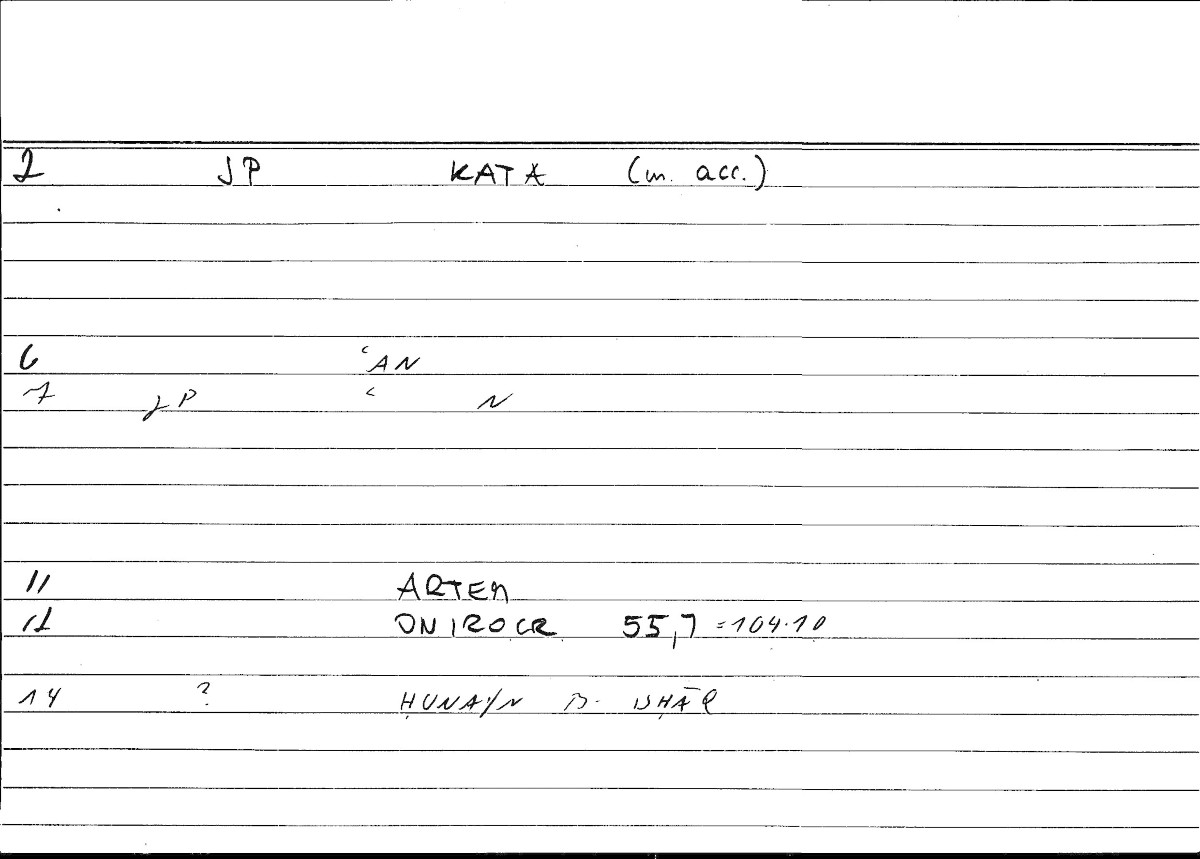 2 JP KATA (m. acc.)
6 ʿAN
7 JP ʿ N
11 ARTEM
12 ONIROCR 55,7 =104.10
14 ? ḤUNAYN B. ISḤĀQ